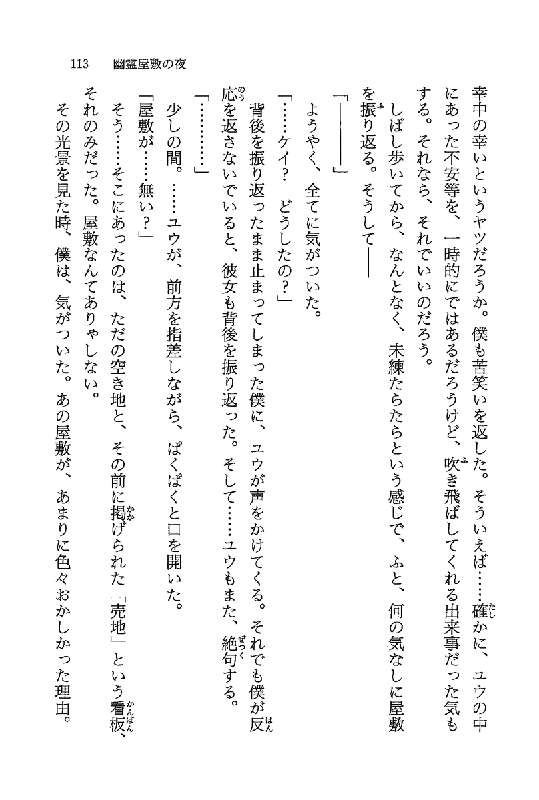 113　幽霊屋敷の夜
幸中の幸いというヤツだろうか。僕も苦笑いを返した。そういえば……確かに、ユウの中
にあった不安等を、一時的にではあるだろうけど、吹き飛ばしてくれる出来事だった気も
する。それなら、それでいいのだろう。
しばし歩いてから、なんとなく、未練たらたらという感じで、ふと、何の気なしに屋敷
を振り返る。そうして――
「――――」
ようやく、全てに気がついた。
「……ケイ？　どうしたの？」
背後を振り返ったまま止まってしまった僕に、ユウが声をかけてくる。それでも僕が反
応を返さないでいると、彼女も背後を振り返った。そして……ユウもまた、絶句する。
「…………」
少しの間。……ユウが、前方を指差しながら、ぱくぱくと口を開いた。
「屋敷が……無い？」
そう……そこにあったのは、ただの空き地と、その前に掲げられた「売地」という看板、
それのみだった。屋敷なんてありゃしない。
その光景を見た時、僕は、気がついた。あの屋敷が、あまりに色々おかしかった理由。